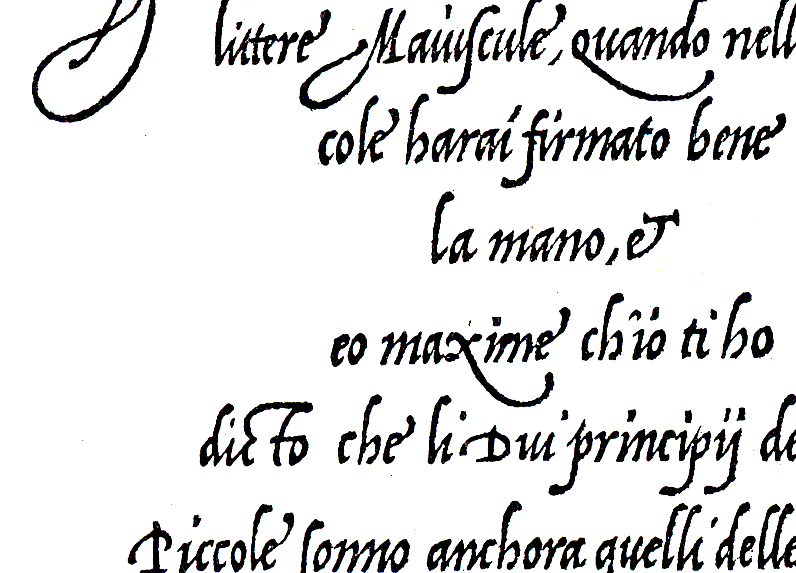 littere Maiuscule, quando nell
cole harai firmato bene
la mano, et
eo maxime ch'io ti ho
dicto che li Dui principij de
Piccole sonno anchora quelli delle